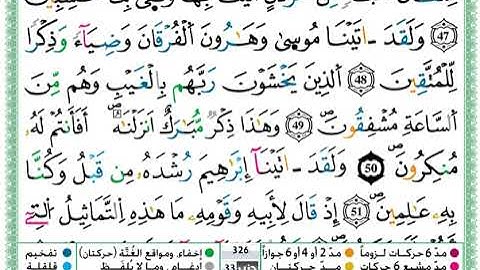 ﴿47﴾ وَلَقَدْ ءَاتَيْنَا مُوسَىٰ وَهَٰرُونَ ٱلْفُرْقَانَ وَضِيَآءً وَذِكْرًا
لِّلْمُتَّقِينَ ﴿48﴾ ٱلَّذِينَ يَخْشَوْنَ رَبَّهُم بِٱلْغَيْبِ وَهُم مِّنَ
ٱلسَّاعَةِ مُشْفِقُونَ ﴿49﴾ وَهَٰذَا ذِكْرٌ مُّبَارَكٌ أَنزَلْنَٰهُ ۚ أَفَأَنتُمْ لَهُۥ
مُنكِرُونَ ﴿50﴾ وَلَقَدْ ءَاتَيْنَآ إِبْرَٰهِيمَ رُشْدَهُۥ مِن قَبْلُ وَكُنَّا
بِهِۦ عَٰلِمِينَ ﴿51﴾ إِذْ قَالَ لِأَبِيهِ وَقَوْمِهِۦ مَا هَٰذِهِ ٱلتَّمَاثِيلُ ٱلَّتِىٓ
مدّ 6 حركات لزوماً مدّ 2 أو 4 أو 6 جوازاً 326 إخفاء، ومواقع الغُنَّة (حركتان) تفخيم
مدّ مشبع 6 حركات مدّ حركتان إدغام، وما لا يُلفَظ قلقلة